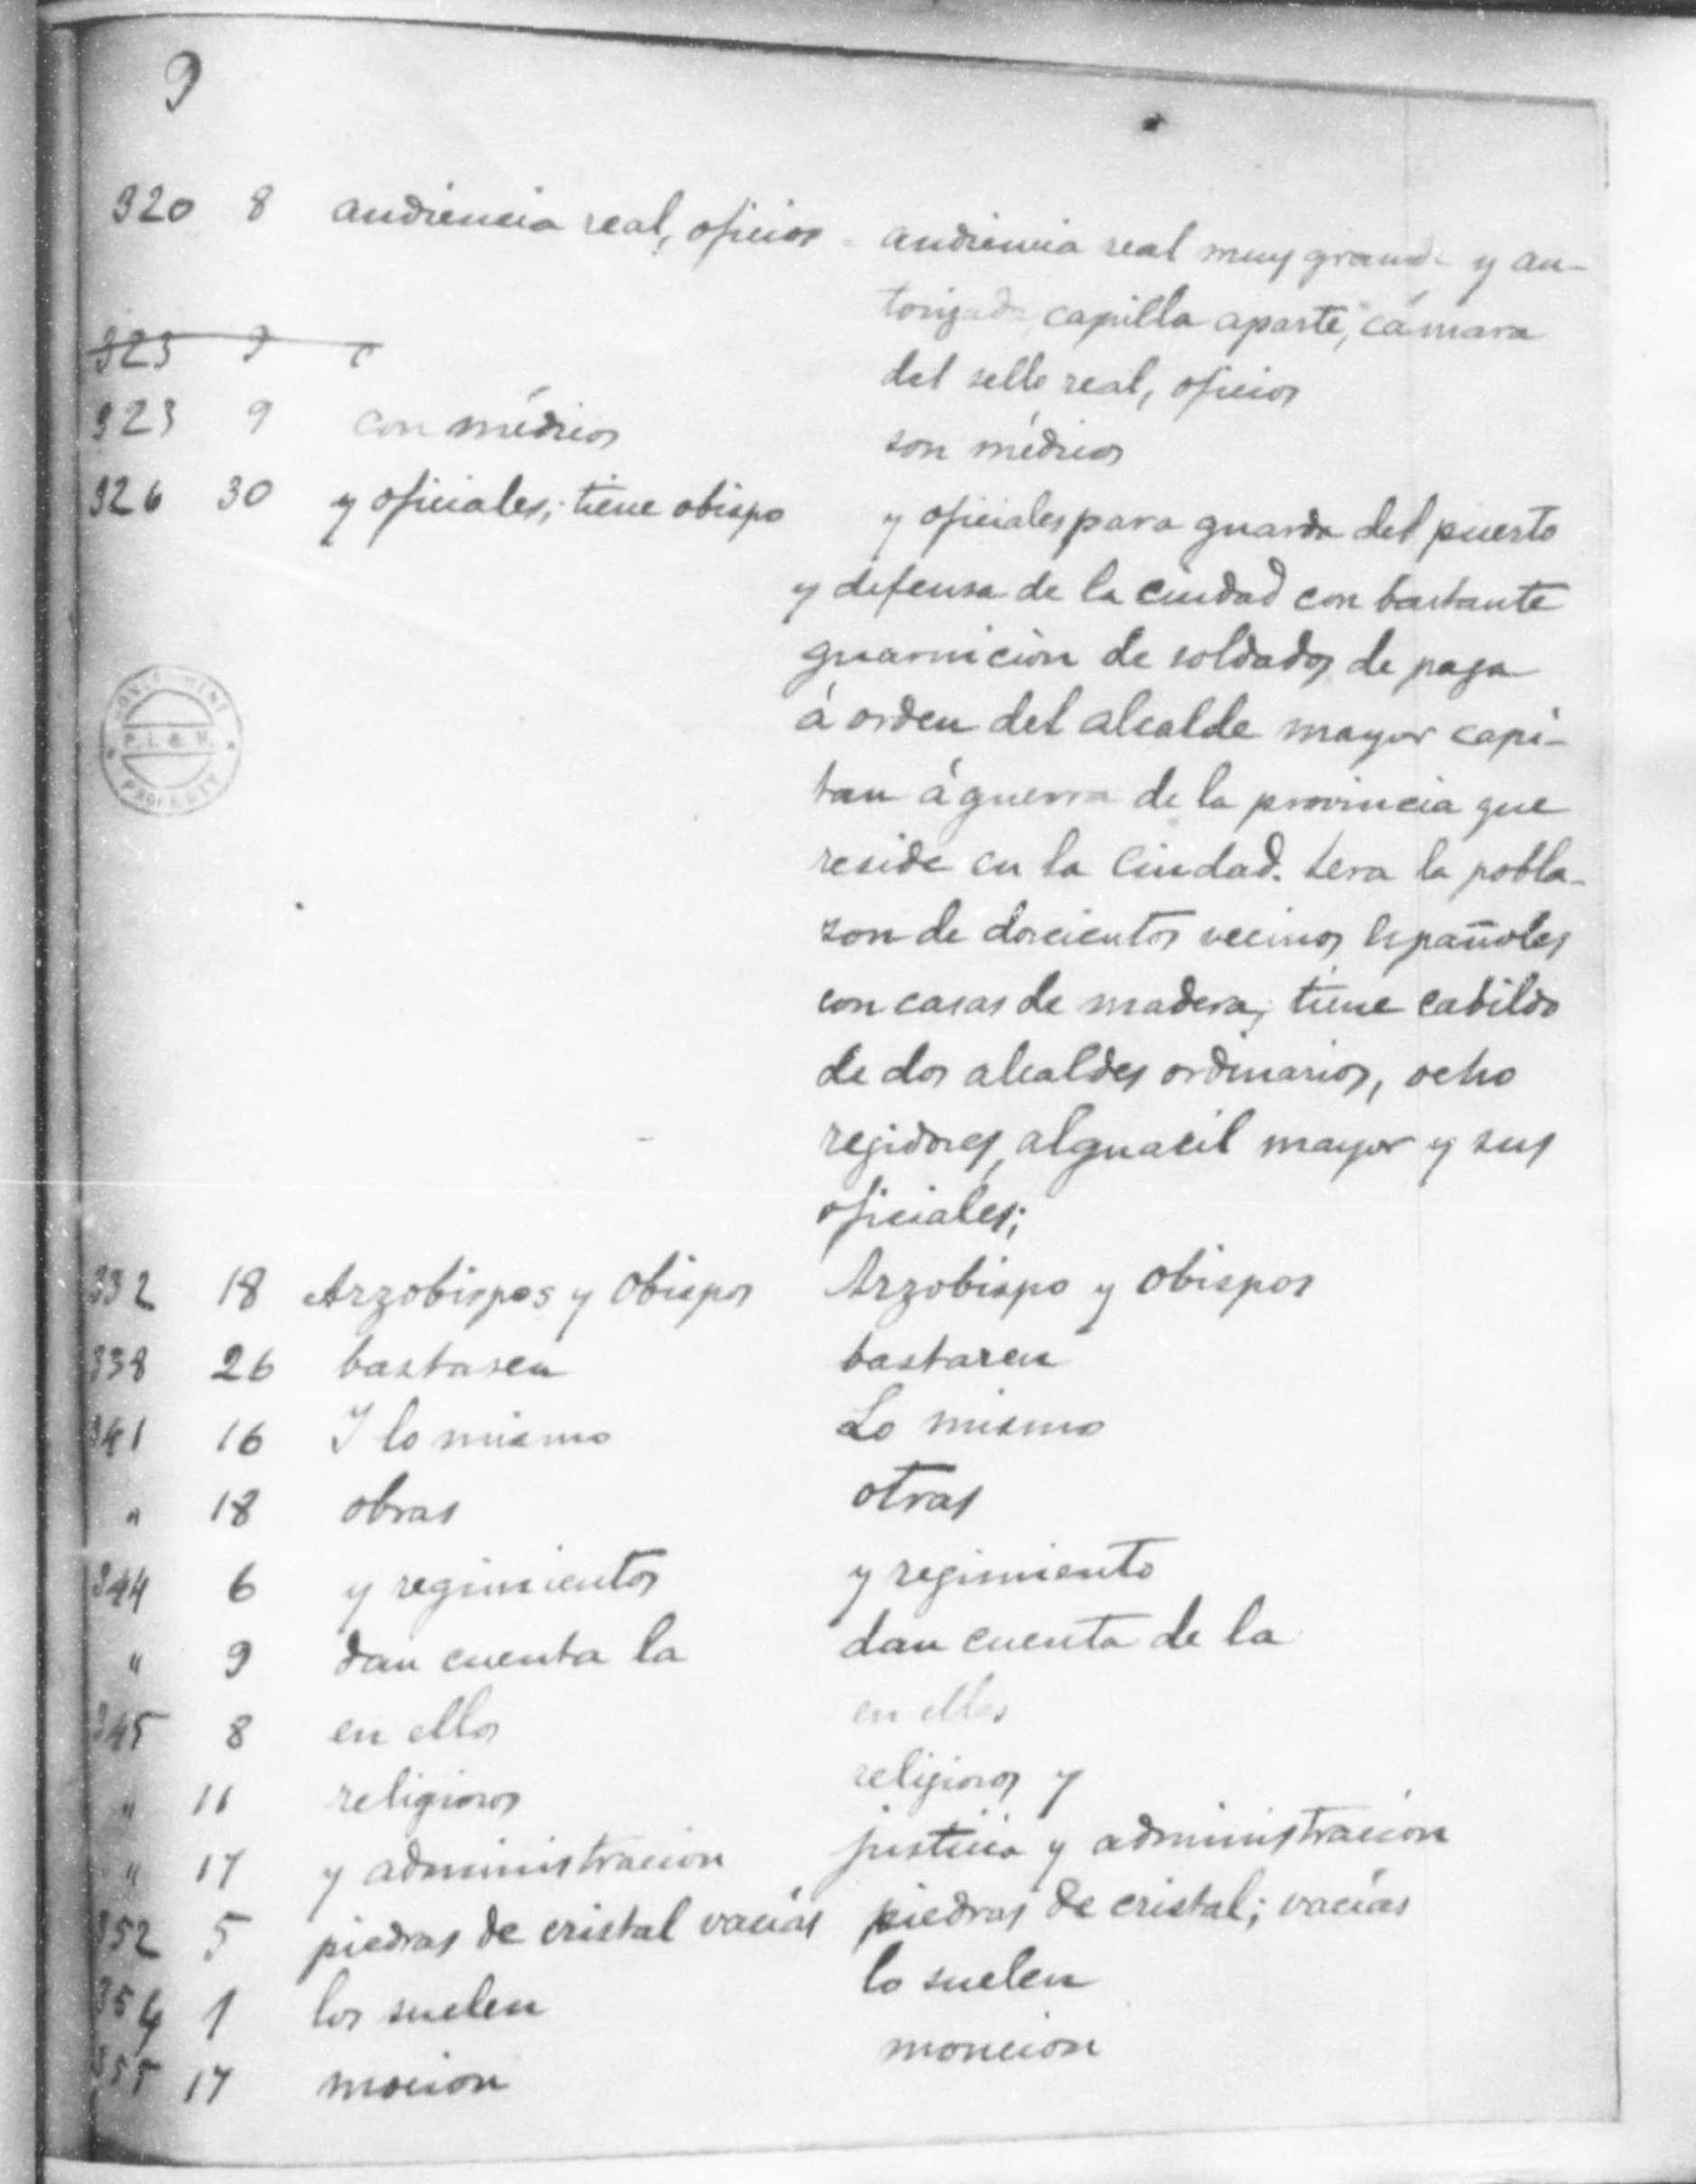 9
320 8 audiencia real, oficios - audiencia real muy grande y au-
torizada capilla aparte, cámara
323 9 c
del sello real, oficios
323 9 con médicos son médicos
326 30 y oficiales; tiene obispo y oficiales para guarda del puerto
y defensa de la ciudad con bastante
guarnicion de soldados de paga
á orden del alcalde mayor capi-
tan á guerra de la provincia que
reside en la Ciudad. Sera la pobla-
zon de docientos vecinos Españoles
con casas de madera; tiene cabildo
de dos alcaldes ordinarios, ocho
regidores, alguacil mayor y sus
oficiales;
332 18 Arzobispos y Obispos Arzobispo y Obispos
338 26 bastasen bastaren
341 16 I lo mismo Lo mismo
" 18 obras otras
344 6 y regimientos y regimiento
" 9 dan cuenta la dan cuenta de la
345 8 en ellos en ellas
" 11 religiosos religiosos y
" 17 y administracion justicia y administración
352 5 piedras de cristal vacías piedras de cristal; vacías
354 1 los suelen lo suelen
355 17 mocion moncion
GOVERNMENT
P. L. & M.
PROPERTY